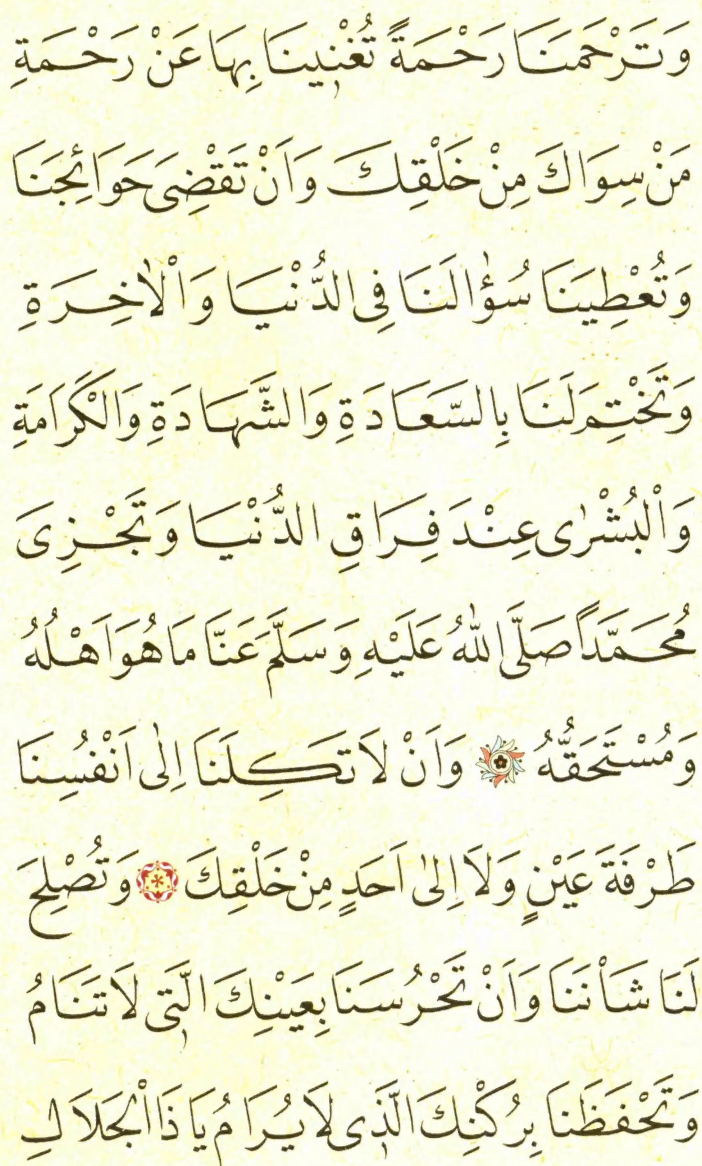 وَتَرْحَمَنَا رَحْمَةً تُغْنِينَا بِهَا عَنْ رَحْمَةِ
مَنْ سِوَاكَ مِنْ خَلْقِكَ وَاَنْ تَقْضِىَ حَوَائِجَنَا
وَتُعْطِيَنَا سُؤٰالَنَا فِى الدُّنْيَا وَاْلاٰخِرَةِ
وَتَخْتِمَ لَنَا بِالسَّعَادَةِ وَالشَّهَادَةِ وَالْكَرَامَةِ
وَالْبُشْرٰى عِنْدَ فِرَاقِ الدُّنْيَا وَتَجْزِىَ
مُحَمَّدًا صَلَّى اللّٰهُ عَلَيْهِ وَسَلَّمَ عَنَّا مَا هُوَ اَهْلُهُ
وَمُسْتَحَقُّهُ وَاَنْ لَا تَكِلَنَا اِلٰى اَنْفُسِنَا
طَرْفَةَ عَيْنٍ وَلَا اِلٰى اَحَدٍ مِنْ خَلْقِكَ وَتُصْلِحَ
لَنَا شَاْنَنَا وَاَنْ تَحْرُسَنَا بِعَيْنِكَ الَّتِى لَا تَنَامُ
وَتَحْفَظَنَا بِرُكْنِكَ الَّذِى لَا يُرَامُ يَا ذَا الْجَلَالِ